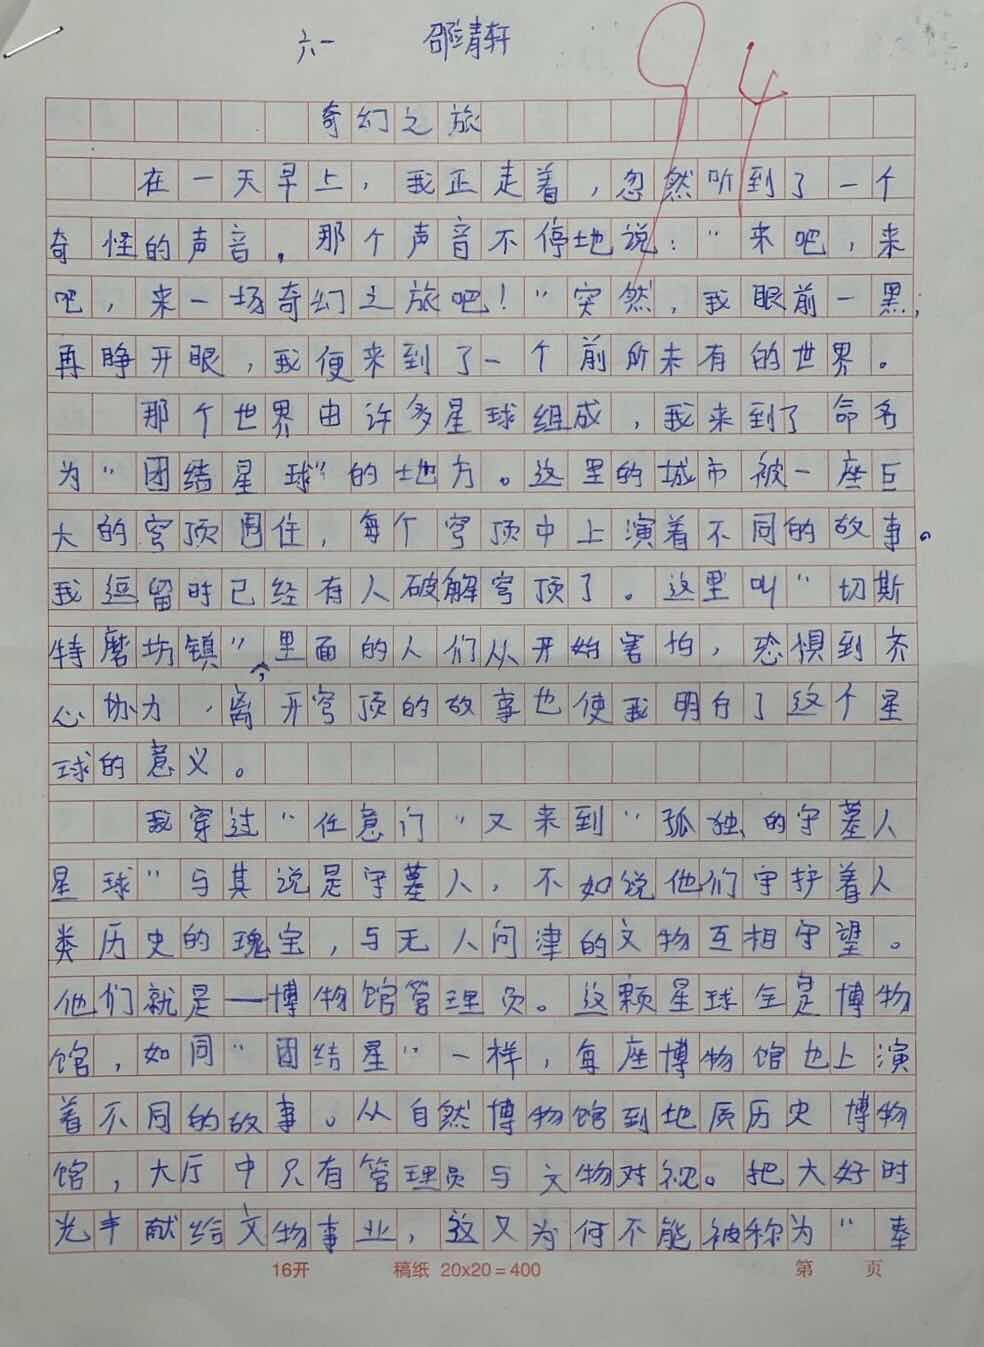 六一 邵靖轩
94
奇幻之旅
在一天早上，我正走着，忽然听到了一个
奇怪的声音。那个声音不停地说："来吧，来
吧，来一场奇幻之旅吧！"突然，我眼前一黑，
再睁开眼，我便来到了一个前所未有的世界。
那个世界由许多星球组成，我来到了命名
为"团结星球"的地方。这里的城市被一座巨
大的穹顶围住，每个穹顶中上演着不同的故事。
我逗留时已经有人破解穹顶了。这里叫"切斯
特磨坊镇"，里面的人们从开始害怕，恐惧到齐
心协力，离开穹顶的故事也使我明白了这个星
球的意义。
我穿过"任意门"又来到"孤独的守墓人
星球"与其说是守墓人，不如说他们守护着人
类历史的瑰宝，与无人问津的文物互相守望。
他们就是——博物馆管理员。这颗星球全是博物
馆，如同"团结星"一样，每座博物馆也上演
着不同的故事。从自然博物馆到地质历史博物
馆，大厅中只有管理员与文物对视。把大好时
光奉献给文物事业，这又为何不能被称为"奉
16开 稿纸 20×20＝400 第 页